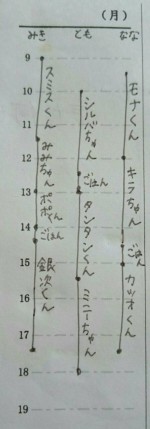 (月)
みき とも なな
9
10
11
12
13
14
15
16
17
18
19
スミスくん
みみちゃん
ポポくん
ごはん
銀次くん
シルバちゃん
ごはん
タンタンくん
ミニーちゃん
モナくん
キララちゃん
ごはん
カツオくん